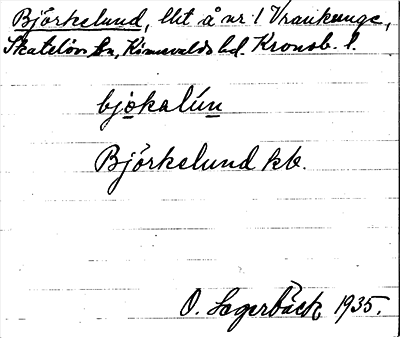 Björkelund, lht å nr 1 Vrankunge,
Skatelöv sn, Kinnevalds hd. Kronob. l.
bjo̱kalúṉ
Björkelund kb.
O. Lagerbäck 1935.